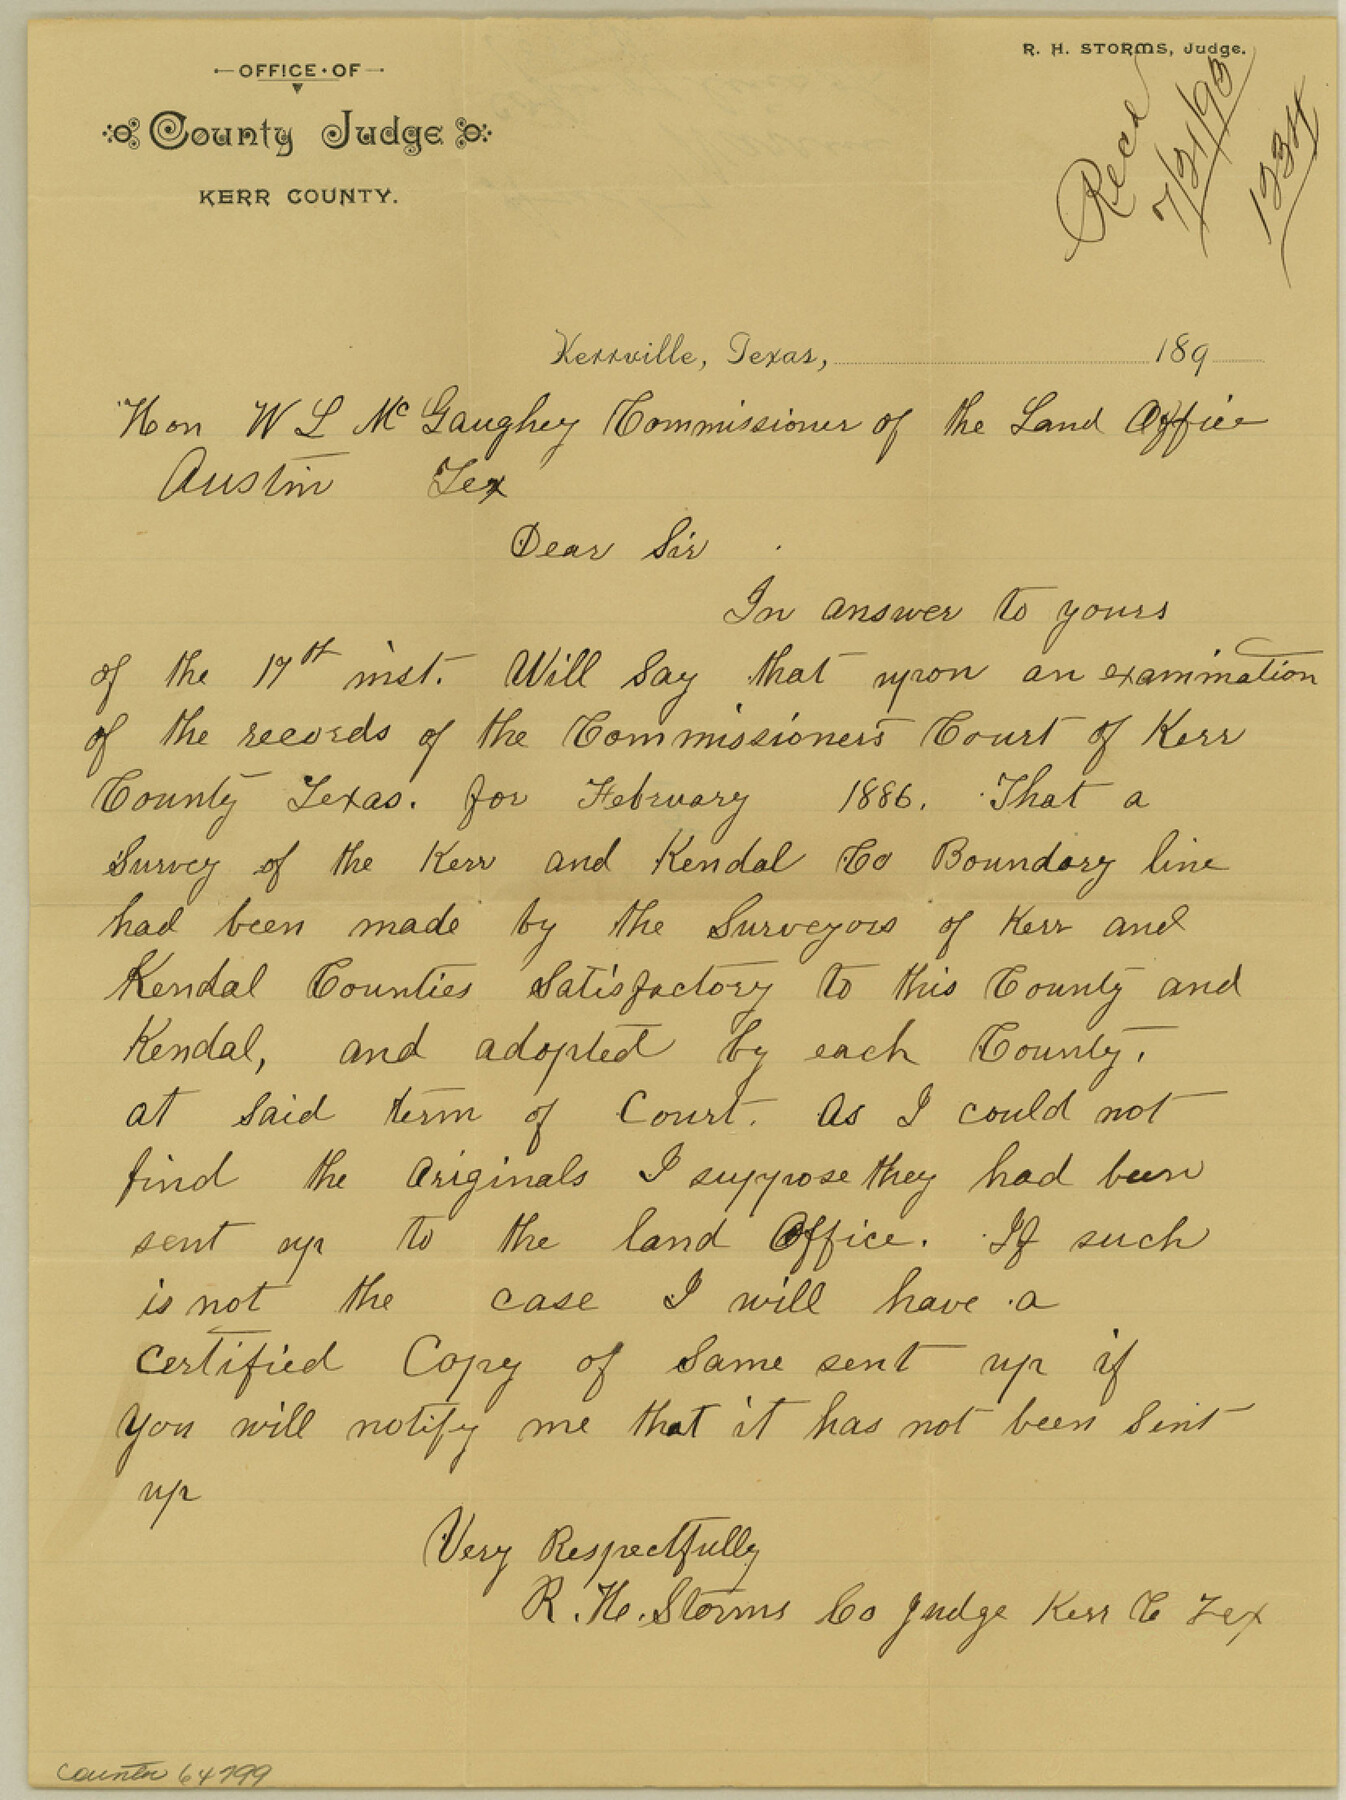 OFFICE·OF
County Judge
KERR COUNTY.
R. H. STORMS, Judge.
Recd
7/21/93
1234
Kerrville, Texas, 189
Hon W L McGaughey Commissioner of the Land Office
Austin Tex
Dear Sir
In answer to yours
of the 17th inst. Will Say that upon an examination
of the records of the Commissioners Court of Kerr
County Texas. for February 1886. That a
Survey of the Kerr and Kendal Co Boundary line
had been made by the Surveyors of Kerr and
Kendal Counties Satisfactory to this County and
Kendal, and adopted by each County.
at Said term of Court. As I could not
find the Originals I suppose they had been
sent up to the land Office. If such
is not the case I will have a
Certified Copy of Same sent up if
You will notify me that it has not been Sent
up
Very Respectfully
R. H. Storms Co Judge Kerr C Tex
counter 64799